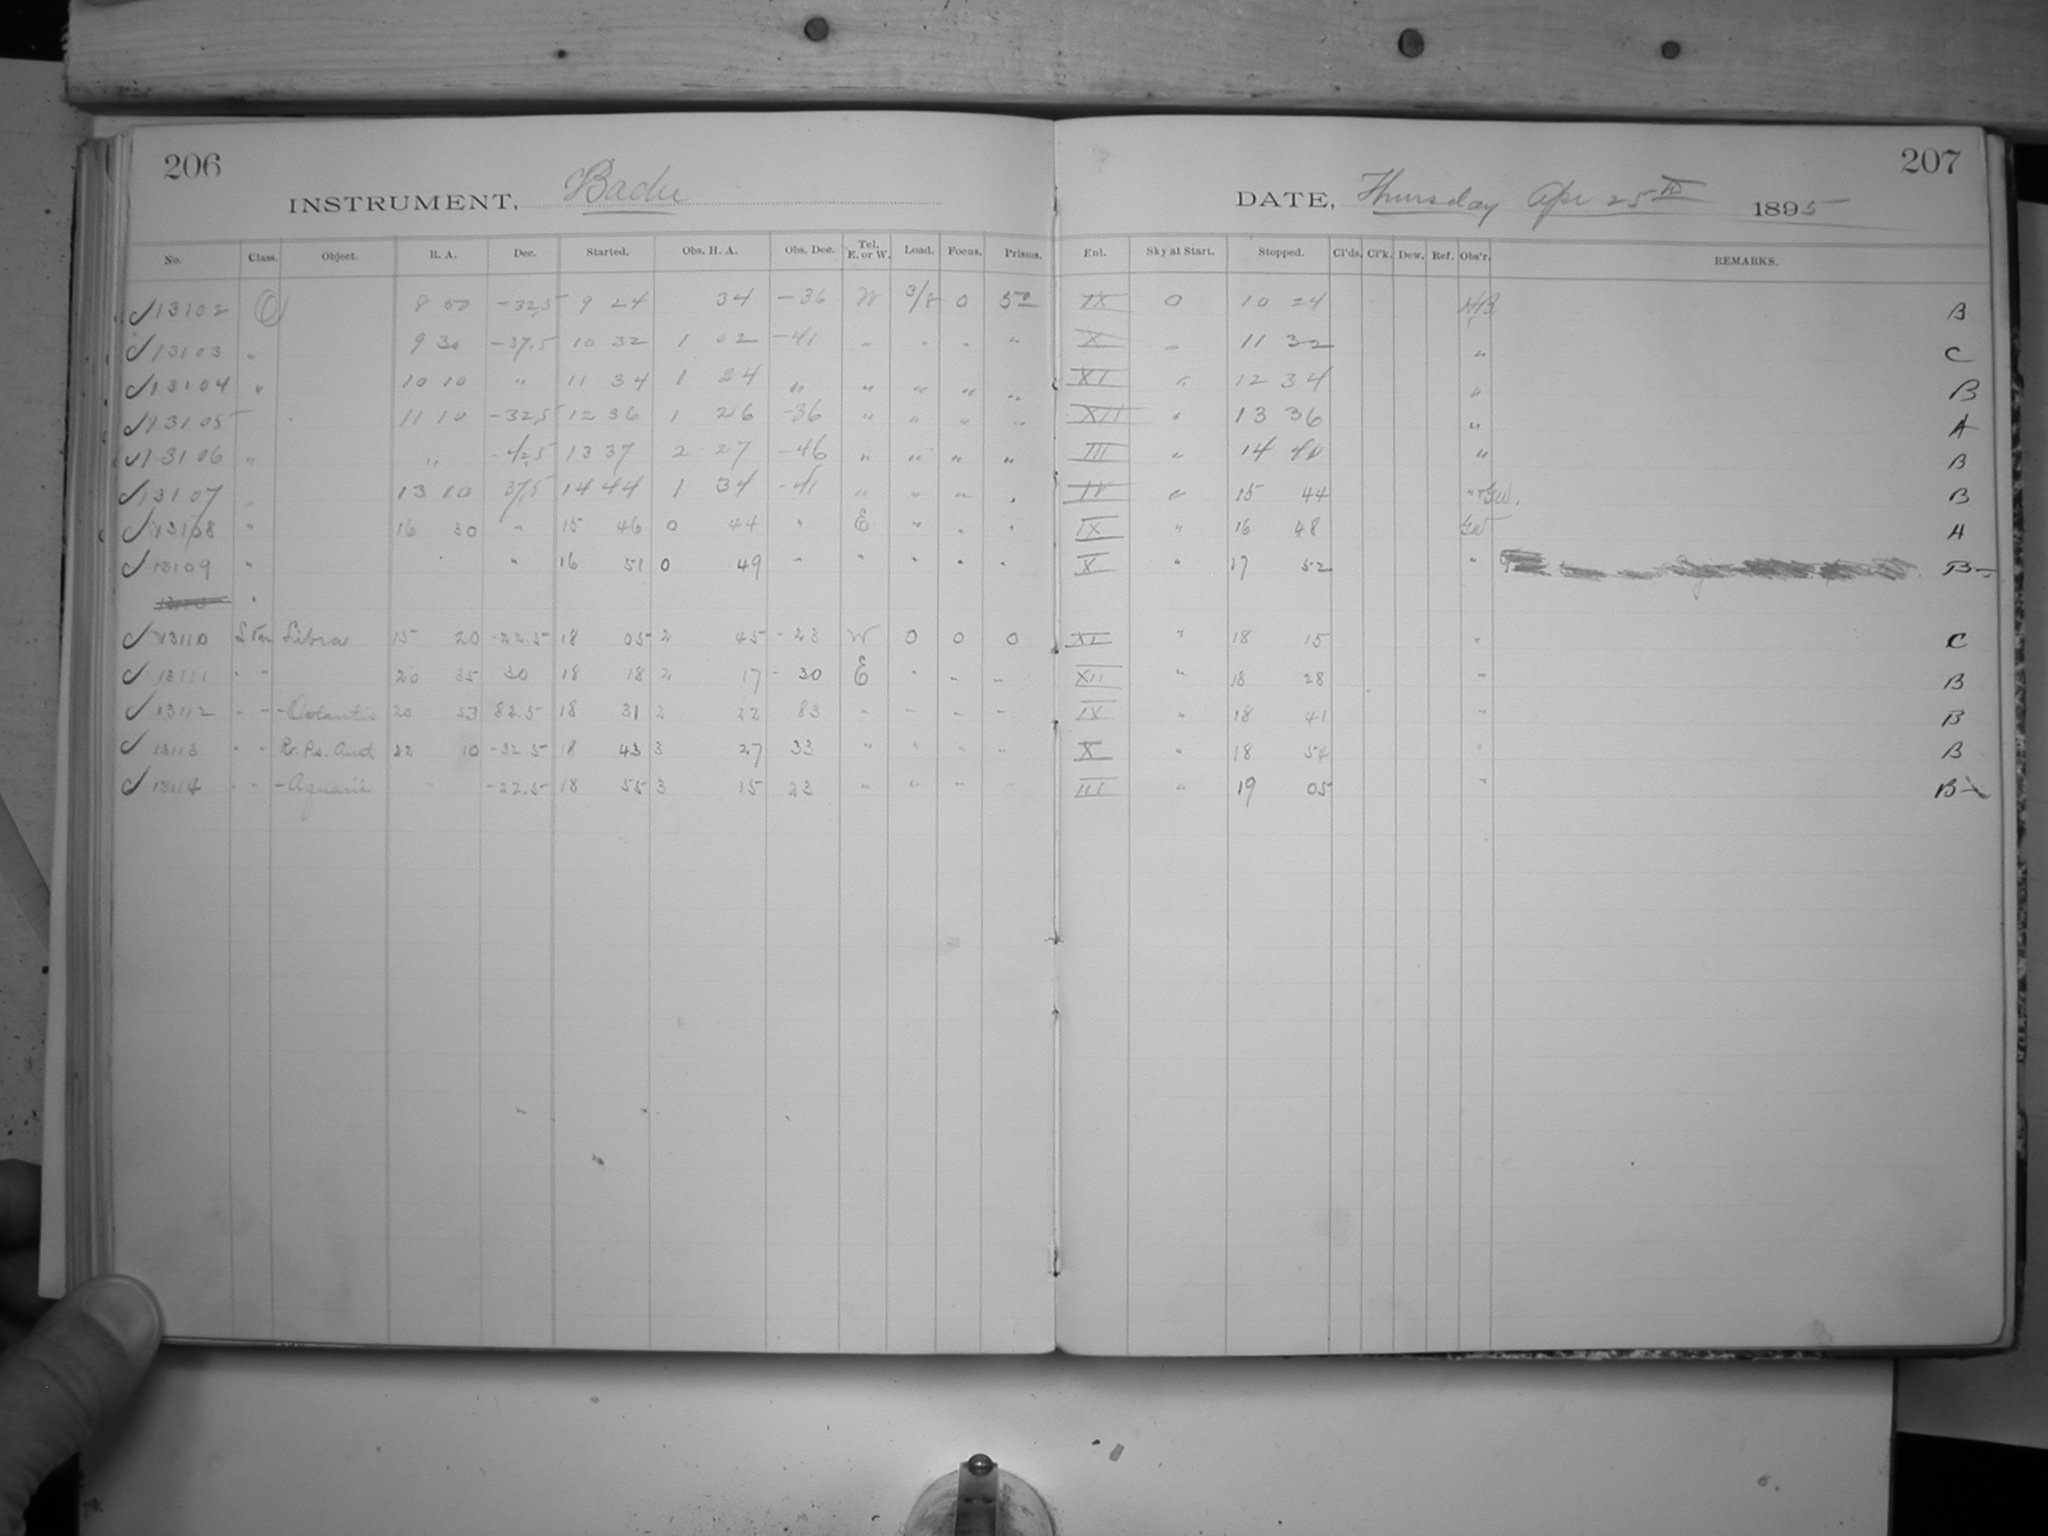 206
207
INSTRUMENT, Bache
DATE, Thursday Apr 25th 1895
No. Class. Object. R. A. Dec. Started. Obs. H. A. Obs. Dec. Tel. E. or W. Load. Focus. Prisms. Enl. Sky at Start. Stopped. Cl'ds. Cl'k. Dew. Ref. Obs'r. REMARKS.
13102 O 8 50 -32.5 9 24 34 -36 W 3/8 0 5 IX 0 10 24 B
13103 " 9 30 -37.5 10 32 1 02 -41 " " " " X " 11 32 " C
13104 " 10 10 " 11 34 1 24 " " " " " XI " 12 34 " B
13105 11 10 -32.5 12 36 1 26 -36 " " " " XII " 13 36 " A
13106 " " -42.5 13 37 2 27 -46 " " " " III " 14 40 " B
13107 " 13 10 37.5 14 44 1 34 -41 " " " " IV " 15 44 " B
13108 " 16 30 " 15 46 0 44 " E " " " IX " 16 48 A
13109 " " " 16 51 0 49 " " " " " X " 17 52 " B-
13110 "
13110 S Var Libra 15 20 -22.5 18 05 2 45 -23 W 0 0 0 XI " 18 15 " C
13111 " " 20 35 30 18 18 2 17 -30 E " " " XII " 18 28 " B
13112 " " - Octantis 20 53 82.5 18 31 2 22 83 " " " " IX " 18 41 " B
13113 " " R. Ps. Aust 22 10 -32.5 18 43 3 27 33 " " " " X " 18 54 " B
13114 " " - Aquarii " -22.5 18 55 3 15 23 " " " " III " 19 05 " B-